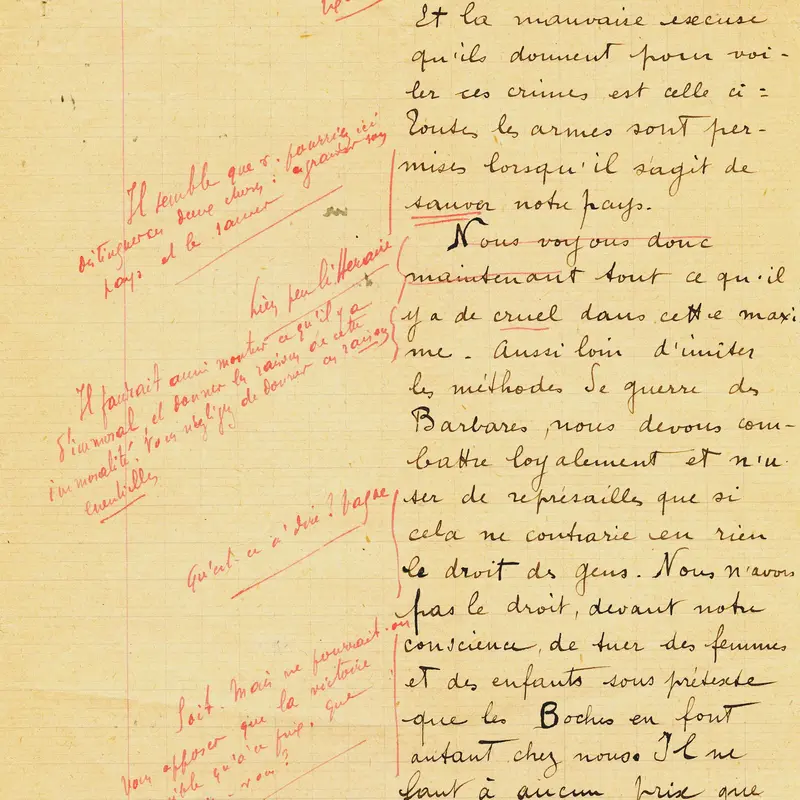 Et la mauvaise excuse
qu'ils donnent pour voi-
ler ces crimes est celle ci =
Toutes les armes sont per-
mises lorsqu'il s'agit de
sauver notre pays.
Nous voyons donc
maintenant tout ce qu'il
y a de cruel dans cette maxi
me. Aussi loin d'imiter
les méthodes de guerre des
Barbares, nous devons com-
battre loyalement et n'u
ser de représailles que si
cela ne contrarie en rien
le droit des gens. Nous n'avons
pas le droit, devant notre
conscience, de tuer des femmes
et des enfants sous prétexte
que les Boches en font
autant chez nous. Il ne
faut à aucun prix que
Il semble que v. pourriez ici
distinguer deux choses : agrandir son
pays et le sauver
bien peu littéraire
Il faudrait aussi montrer ce qu'il y a
d'immoral, et donner les raisons de cette
immoralité. Vous négligez de donner ces raisons
essentielles
Qu'est-ce à dire ? Vague
Soit. Mais ne pourrait-on
vous opposer que la victoire
qu'à ce prix, que
vous ?